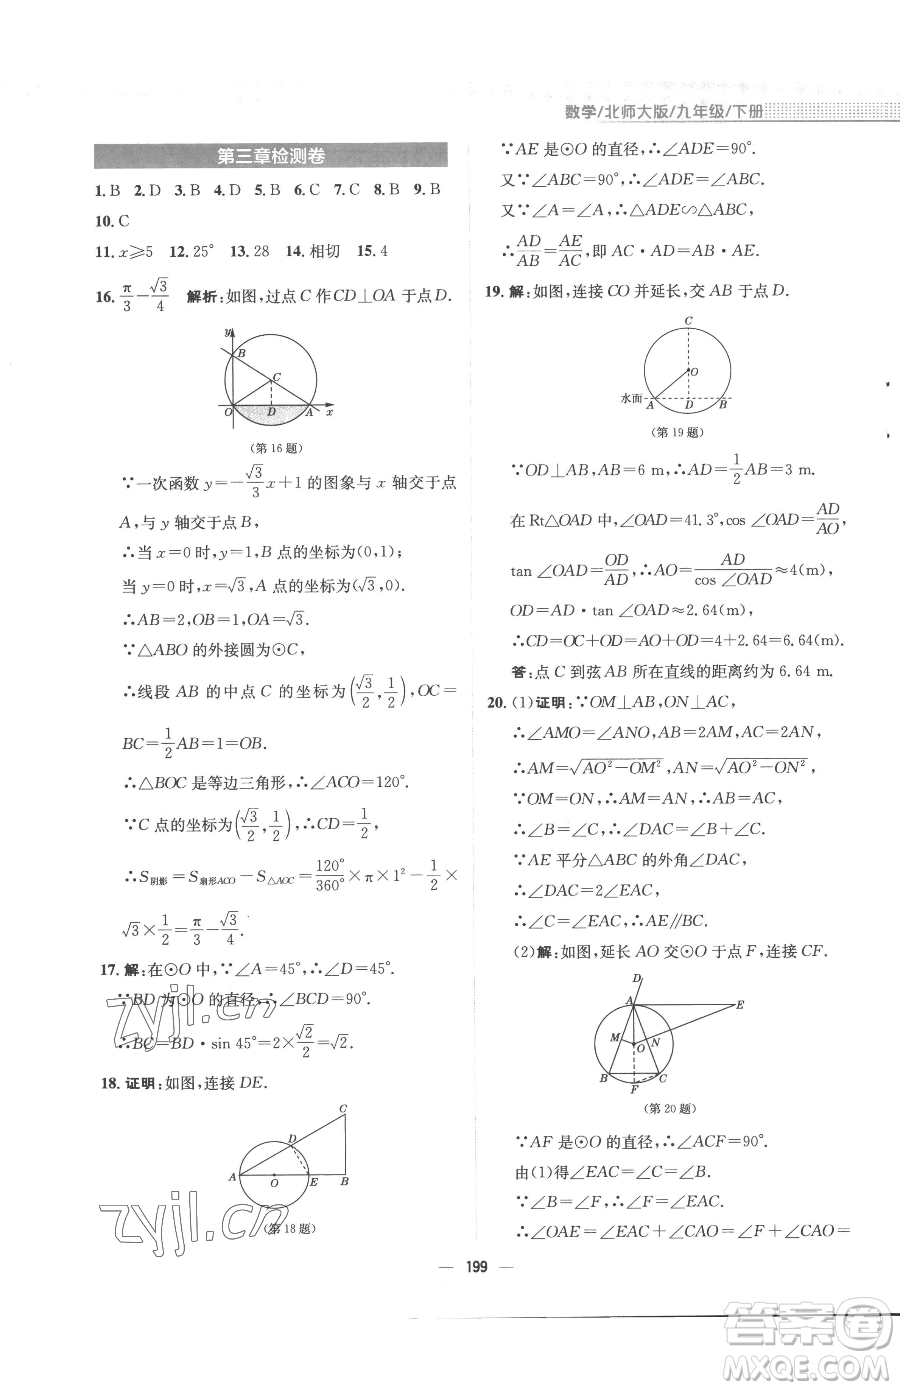 数学/北师大版/九年级/下册
第三章检测卷
1. B  2. D  3. B  4. D  5. B  6. C  7. C  8. B  9. B
10. C
11. x⩾5  12. 25°  13. 28  14. 相切  15. 4
16. π/3-√3/4  解析:如图,过点C作CD⊥OA于点D.
y
B
C
O
D
A
x
(第16题)
∵一次函数 y=-√3/3x+1的图象与x轴交于点
A,与y轴交于点B,
∴当x=0时,y=1,B点的坐标为(0,1);
当y=0时,x=√3,A点的坐标为(√3,0).
∴AB=2,OA=√3.
∵△ABO的外接圆为⊙C,
∴线段AB的中点C的坐标为(√3/2,1/2),OC=
BC=1/2AB=1=OB.
∴△BOC是等边三角形,∴∠ACO=120°.
∵C点的坐标为(√3/2,1/2),∴CD=1/2,
∴S阴影=S扇形ACO-S△AOC=120°/360°×π×1²-1/2×
√3×1/2=π/3-√3/4.
17. 解:在⊙O中,∵∠A=45°,∴∠D=45°.
∵BD为⊙O的直径,∴∠BCD=90°.
∴BC=BD·sin 45°=2×√2/2=√2.
18. 证明:如图,连接DE.
C
D
A
O
E
B
(第18题)
∵AE是⊙O的直径,∴∠ADE=90°.
又∵∠ABC=90°,∴∠ADE=∠ABC.
又∵∠A=∠A,∴△ADE∽△ABC,
∴AD/AB=AE/AC,即AC·AD=AB·AE.
19. 解:如图,连接CO并延长,交AB于点D.
C
O
水面
A
D
B
(第19题)
∵OD⊥AB,AB=6 m,∴AD=1/2AB=3 m.
在Rt△OAD中,∠OAD=41.3°,cos∠OAD=AD/AO,
tan∠OAD=OD/AD,∴AO=AD/cos∠OAD≈4(m),
OD=AD·tan∠OAD≈2.64(m),
∴CD=OC+OD=AO+OD=4+2.64=6.64(m).
答:点C到弦AB所在直线的距离约为6.64 m.
20. (1)证明:∵OM⊥AB,ON⊥AC,
∴∠AMO=∠ANO=90°,AB=2AM,AC=2AN,
∴AM=√AO²-OM²,AN=√AO²-ON²,
∵OM=ON,∴AM=AN,∴AB=AC,
∴∠B=∠C,∴∠DAC=∠B+∠C.
∵AE平分△ABC的外角∠DAC,
∴∠DAC=2∠EAC,
∴∠C=∠EAC,∴AE∥BC.
(2)解:如图,延长AO交⊙O于点F,连接CF.
D
A
E
M
O
N
B
C
F
(第20题)
∵AF是⊙O的直径,∴∠ACF=90°.
由(1)得∠EAC=∠C=∠B.
∵∠B=∠F,∴∠F=∠EAC.
∴∠OAE=∠EAC+∠CAO=∠F+∠CAO=
199
zyjl.cn
zyjl.cn
答案圈
MXQE.COM